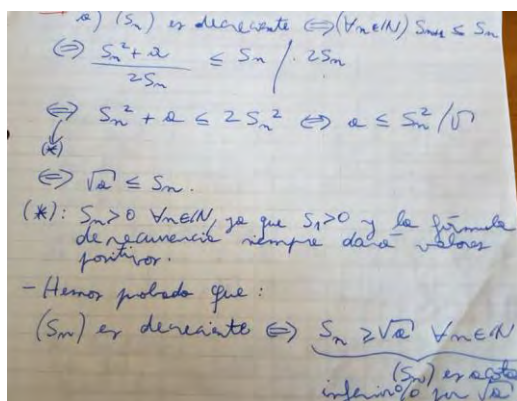 a) (Sn) es decreciente ⇔ (∀n∈ℕ) Sn+1 ≤ Sn
⇔ Sn² + a / 2Sn ≤ Sn / · 2Sn
⇔ Sn² + a ≤ 2Sn² ⇔ a ≤ Sn² / √
(*)
⇔ √a ≤ Sn.
(*): Sn > 0 ∀n∈ℕ, ya que S1 > 0 y la fórmula
de recurrencia siempre dará valores
positivos.
- Hemos probado que:
(Sn) es decreciente ⇔ Sn ≥ √a ∀n∈ℕ
(Sn) es acota
inferior% por √a